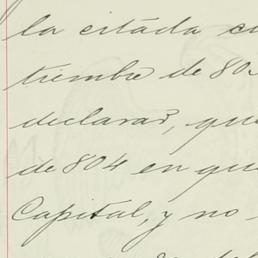 la citada
tiembre de 80
declarar, que
de 804 en que
Capital, y no